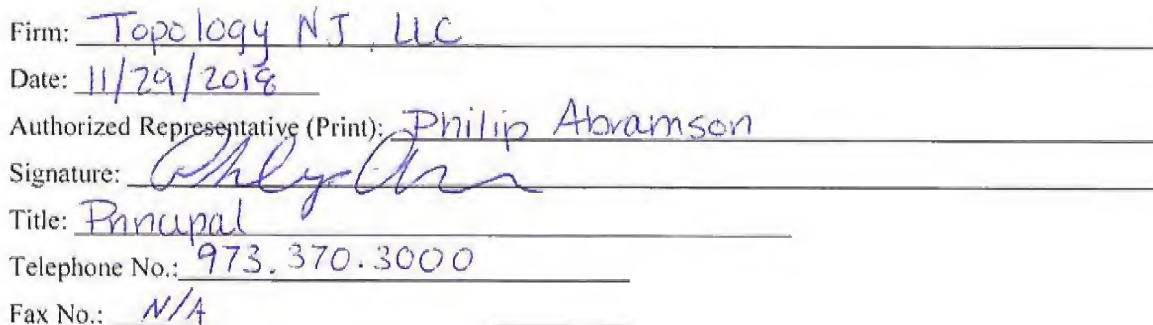 Firm: Topology NJ, LLC
Date: 11/29/2018
Authorized Representative (Print): Philip Abramson
Signature:
Title: Principal
Telephone No.: 973.370.3000
Fax No.: N/A